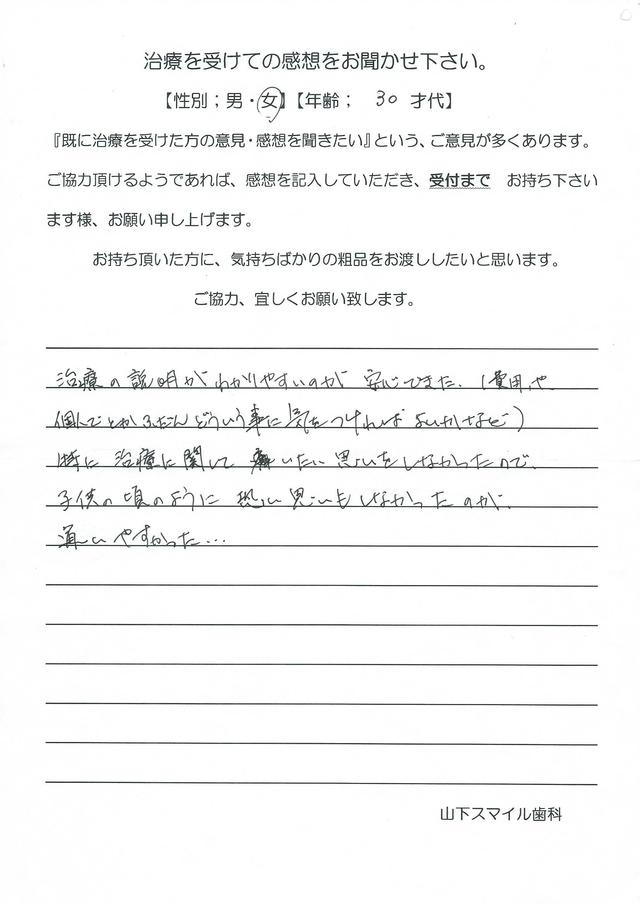 治療を受けての感想をお聞かせ下さい。
【性別；男・女】【年齢； 30 才代】
『既に治療を受けた方の意見・感想を聞きたい』という、ご意見が多くあります。
ご協力頂けるようであれば、感想を記入していただき、受付まで お持ち下さい
ます様、お願い申し上げます。
お持ち頂いた方に、気持ちばかりの粗品をお渡ししたいと思います。
ご協力、宜しくお願い致します。
治療の説明がわかりやすいのが 安心できた。（費用や、
とかふだんどういう事に気をつければよいかなど）
特に治療に関して いたい思いをしなかったので、
子供の頃のように 恐い思いもしなかったのが、
通いやすかった…
山下スマイル歯科